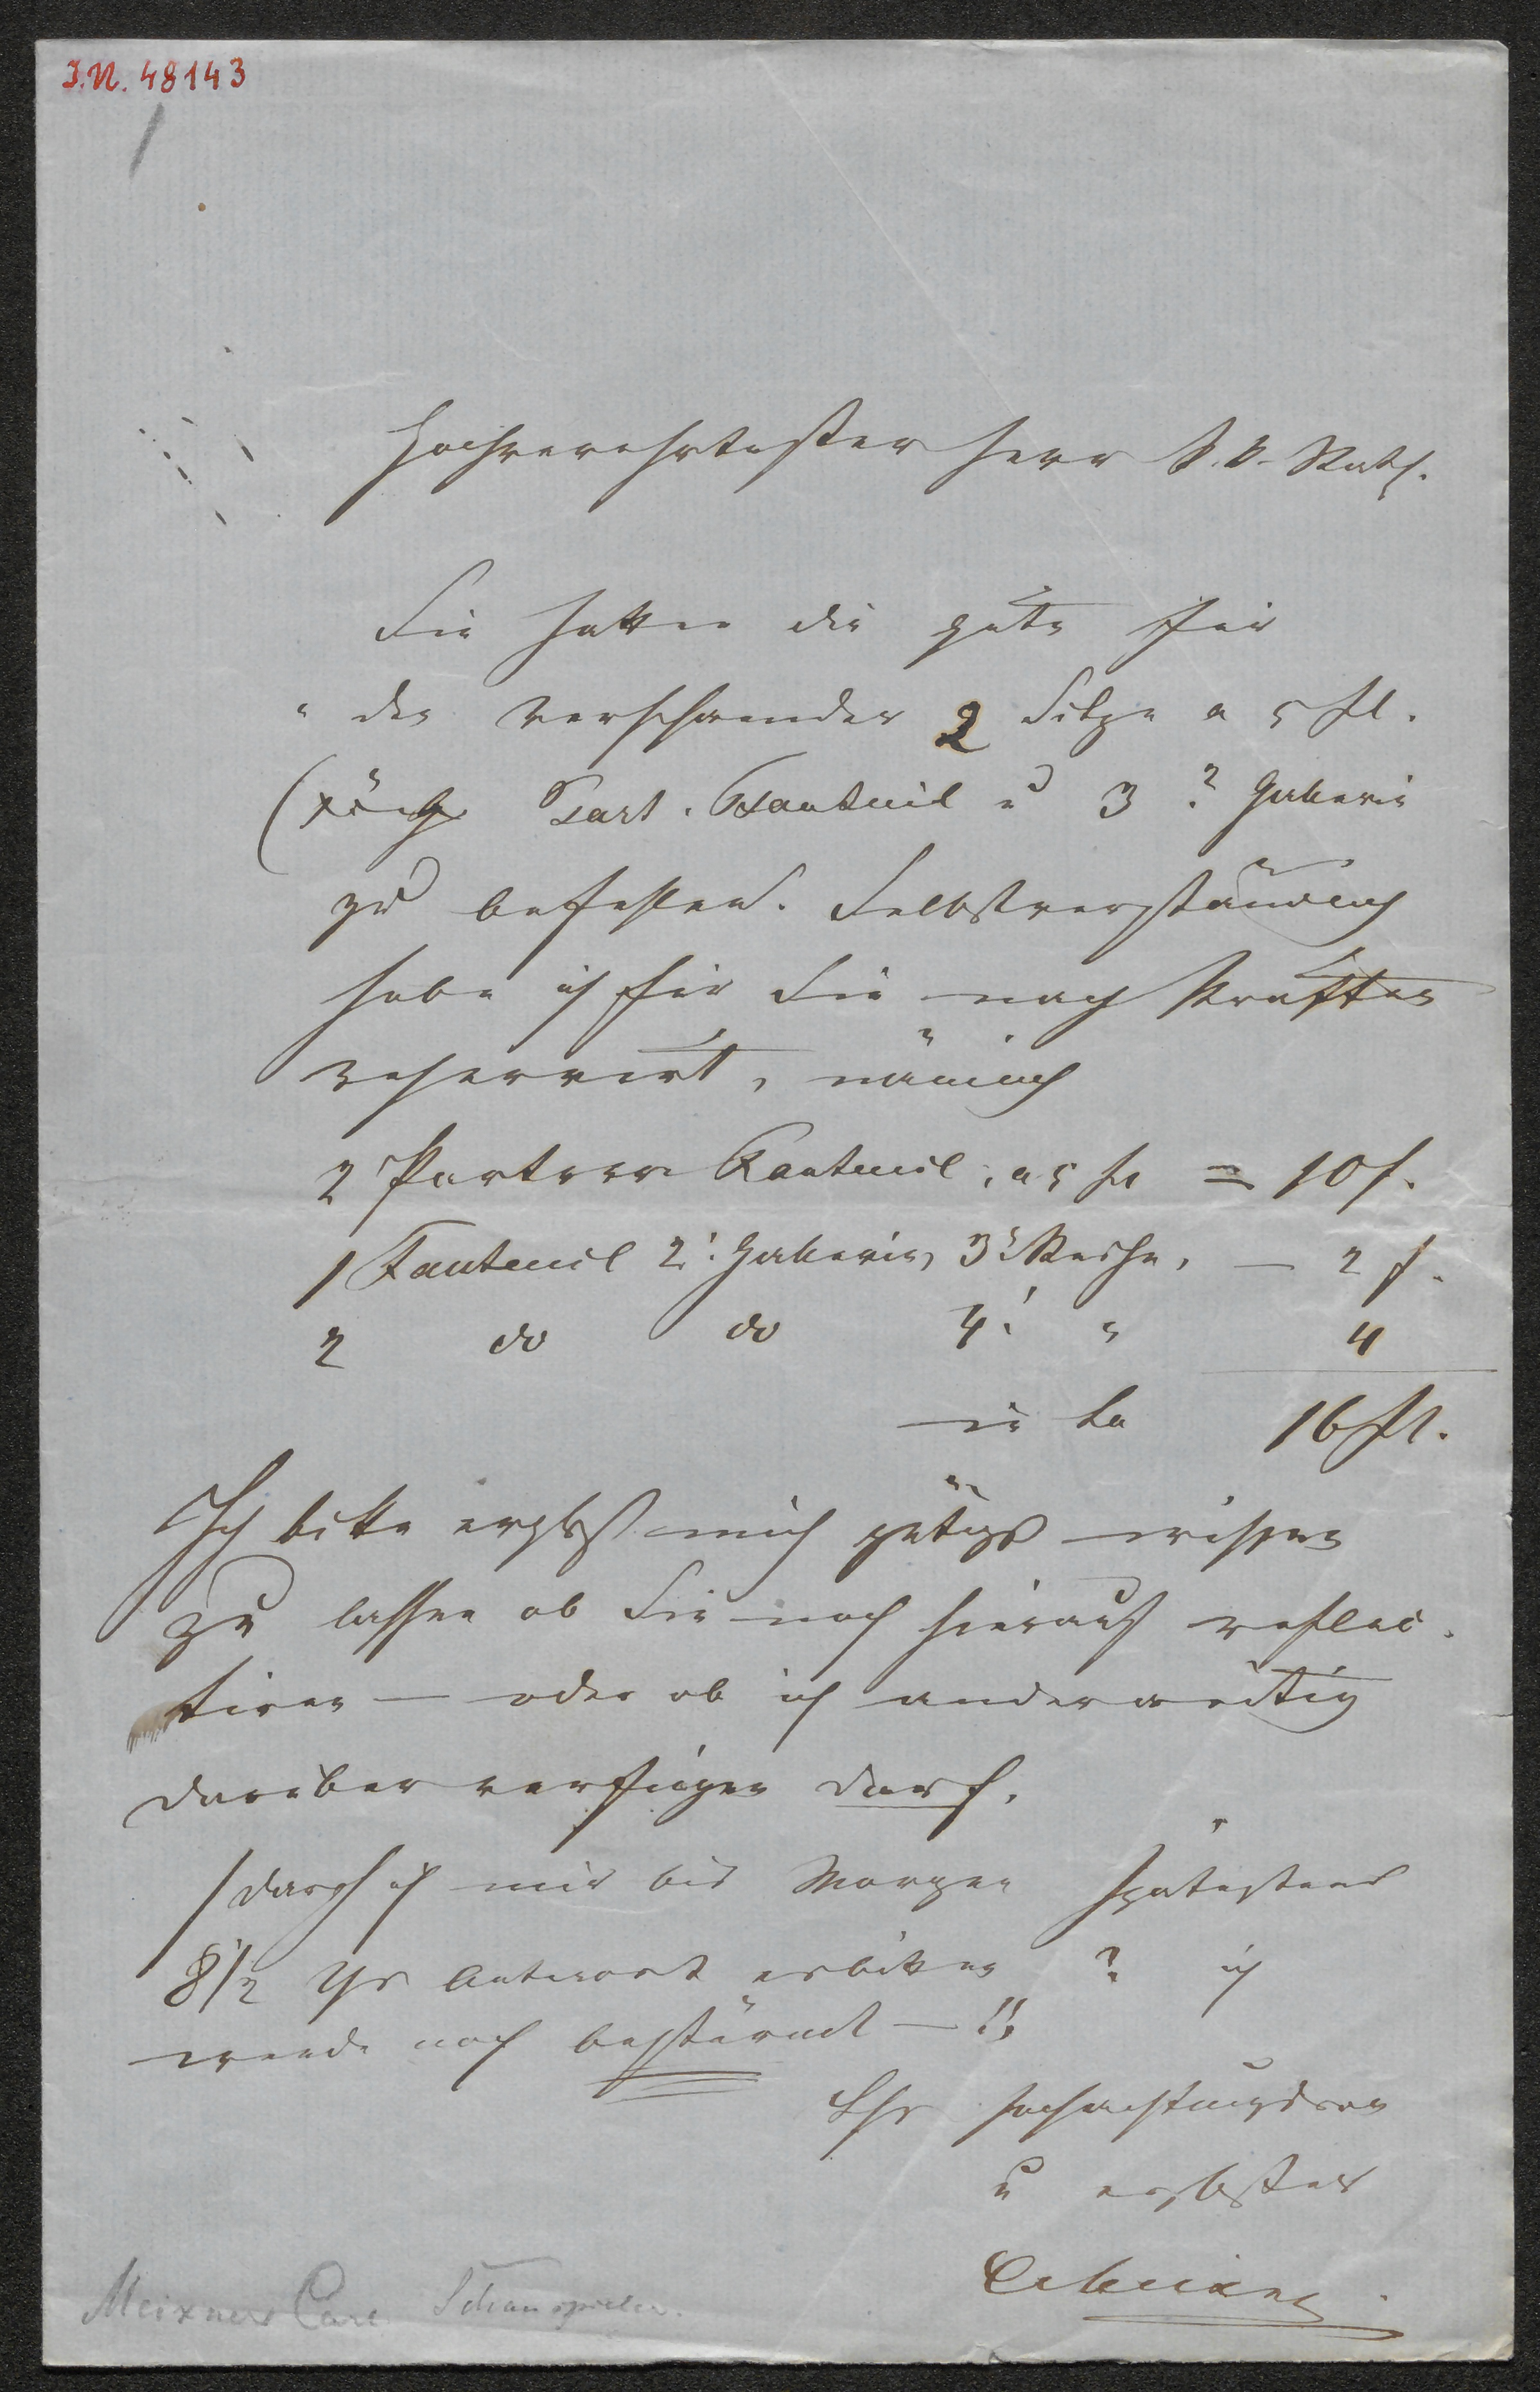 I.N. 48143
Hochverehrtester Herr k. k. Rath.
Sie hatten die güte für
" der Verschwender 2 Sitze a 5 fl.
( Part. Fauteuil u 3 2 Gallerie
zu befehlen. Selbstverständlich
habe ich für Sie nach Kräften
reservirt, nämlich
2 Parterre Fauteuil, a 5 fl = 10 f.
1 Fauteuil 2t Gallerie, 3t Reihe, — 2 f.
2 do do 4t " 4
in 16 fl.
Ich bitte ergbst mich gütigst wissen
zu lassen ob Sie noch hierauf reflec-
tiren — oder ob ich anderweitig
darüber verfügen darf.
/ darf ich mir bis Morgen spätestens
8 1/2 Uhr Antwort erbitten ? ich
werde noch bestürmt — !!
Ihr hochachtungsvoll
u ergbster
CMeixner
Meixner Carl Schauspieler.